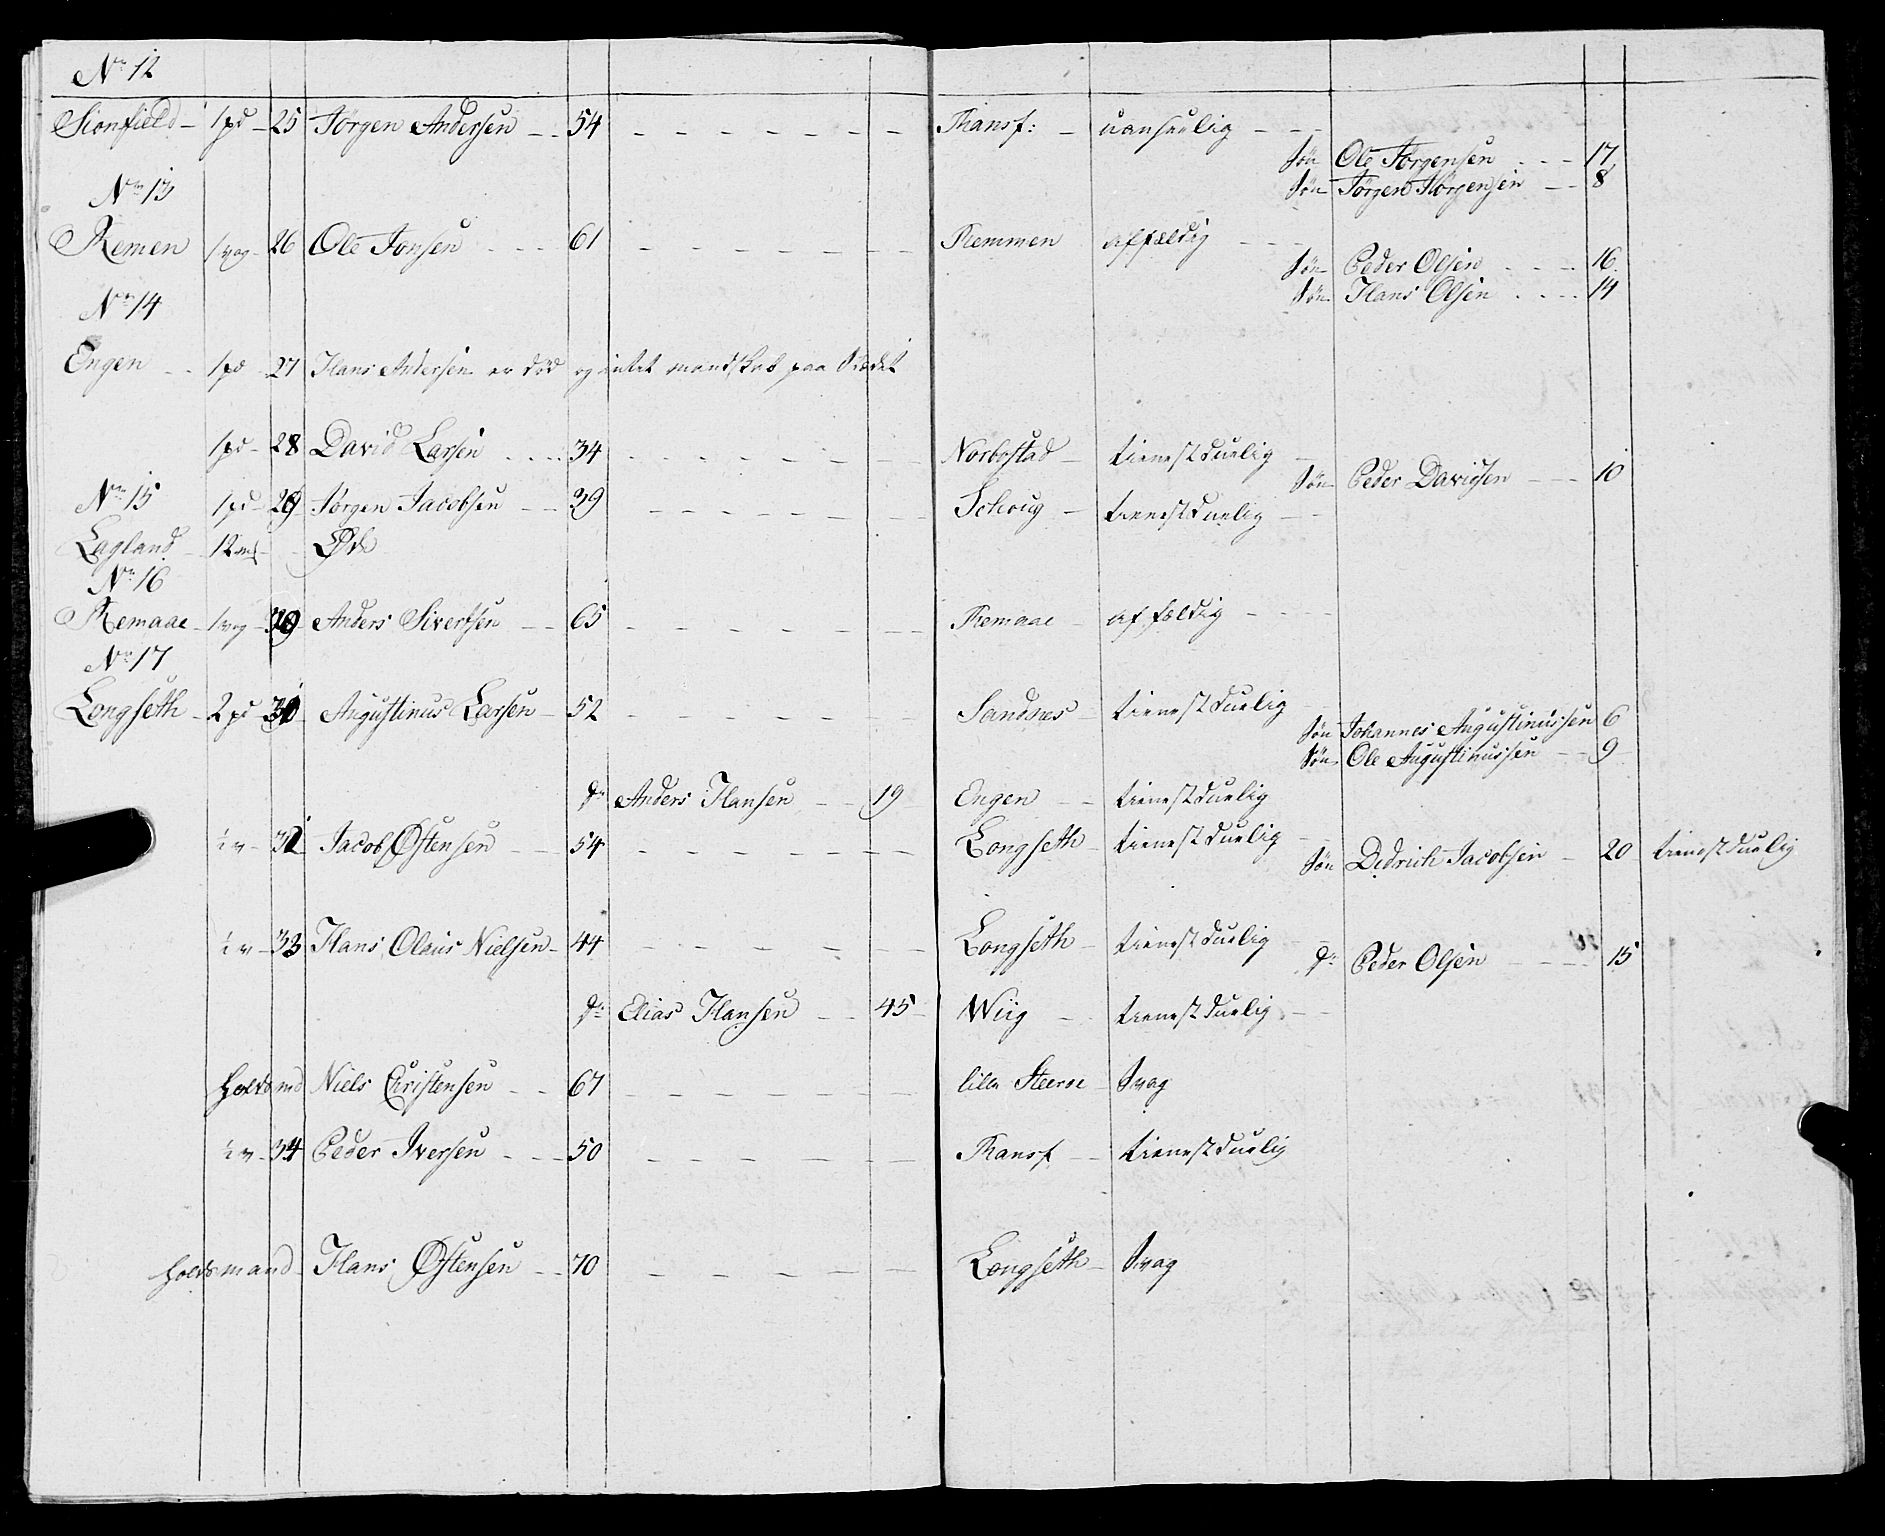 No 12
Sionfield 1 pd 25 Jørgen Andersen 54 Thansf: uanseelig
Søn Ole Jørgensen 17
No 13 Søn Jørgen Jørgensen 8
Remen 1 vog 26 Ole Jonsen 61 Remmen affældig
Søn Peder Olsen 16
No 14 Søn Hans Olsen 14
Engen 1 pd 27 Hans Andersen er død og intet mandskab paa Stædet
1 pd 28 David Larsen 34 Norbostad tienestduelig
Søn Peder Davidsen 10
No 15 1 pd 29 Jørgen Jacobsen 39 Schoug tienestduelig
Lagland 12 mk Øde
No 16
Remaae 1 vog 30 Anders Sivertsen 65 Remaae affældig
No 17
Longseth 2 pd 31 Augustinus Larsen 52 Sandnes tienestduelig
Søn Johannes Augustinussen 6
Søn Ole Augustinussen 9
do Anders Hansen 19 Engen tienestduelig
1 v 32 Jacob Østensen 54 Longseth tienestduelig
Søn Dedrich Jacobsen 20 tienestduelig
1 v 33 Hans Olaus Nielsen 44 Longseth tienestduelig
do Peder Olsen 15
do Elias Hansen 45 Wiig tienestduelig
Holdsmd Niels Christensen 67 lille Steeroe Svag
1 v 34 Peder Iversen 50 Ransf tienestduelig
Holdsmand Hans Østensen 70 Longseth Svag